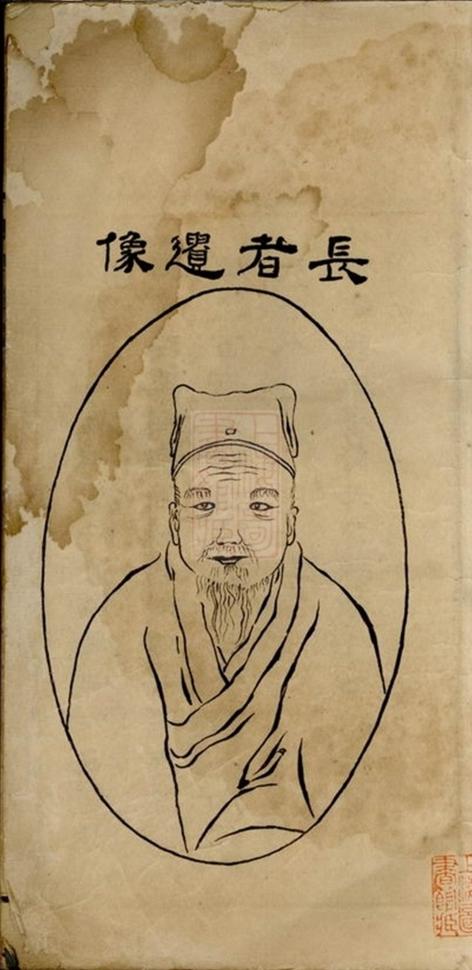 長者遺像